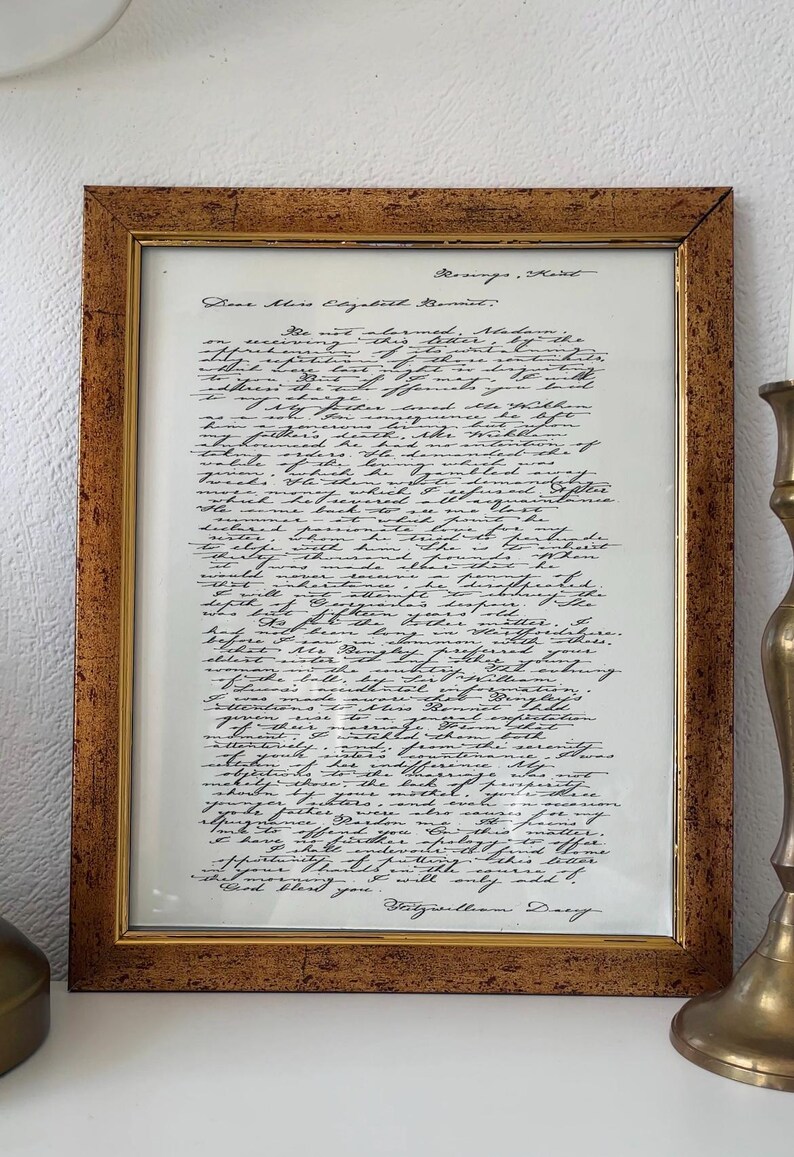 Rosings, Kent
Dear Miss Elizabeth Bennet,
Be not alarmed, Madam,
on receiving this letter, by the
apprehension of its containing
any repetition of those sentiments,
which were last night so disgusting
to you. But if I may, I will
address the two offences you laid
to my charge.
My father loved Mr Wickham
as a son. For sequence he left
him a generous living but upon
my father's death, Mr Wickham
announced he had no intention of
taking orders. He demanded the
value of the living which was
given, which he gambled away
weeks. He then wrote demanding
more money which I refused After
which he severed all acquaintance.
He came back to see me last
summer at which point he
declared passionate love for my
sister, whom he tried to persuade
to elope with him. She is to inherit
thirty thousand pounds When
it was made clear that he
would never receive a penny of
that inheritance he disappeared.
I will not attempt to convey the
depth of Georgiana's despair. She
was but fifteen years old.
As for the other matter, I
had not been long in Hertfordshire,
before I saw in common with others.
that Mr Bingley preferred your
eldest sister to any other young
woman in the country. The evening
of the ball, by Sir William
Lucas's accidental information,
I was made aware that Bingley's
attentions to Miss Bennet had
given rise to a general expectation
of their marriage. From that
moment, I watched them both
attentively and, from the serenity
of your sister's countenance, I was
certain of her indifference. My
objections to the marriage was not
merely those the lack of prosperity
shown by your mother your three
younger sisters, and even on occasion
your father, were also causes for my
repugnance Pardon me. It pains
me to offend you On this matter,
I have no further apology to offer.
I shall endevour to find some
opportunity of putting this letter
in your hands in the course of
the morning. I will only add,
God bless you.
Fitzwilliam Darcy